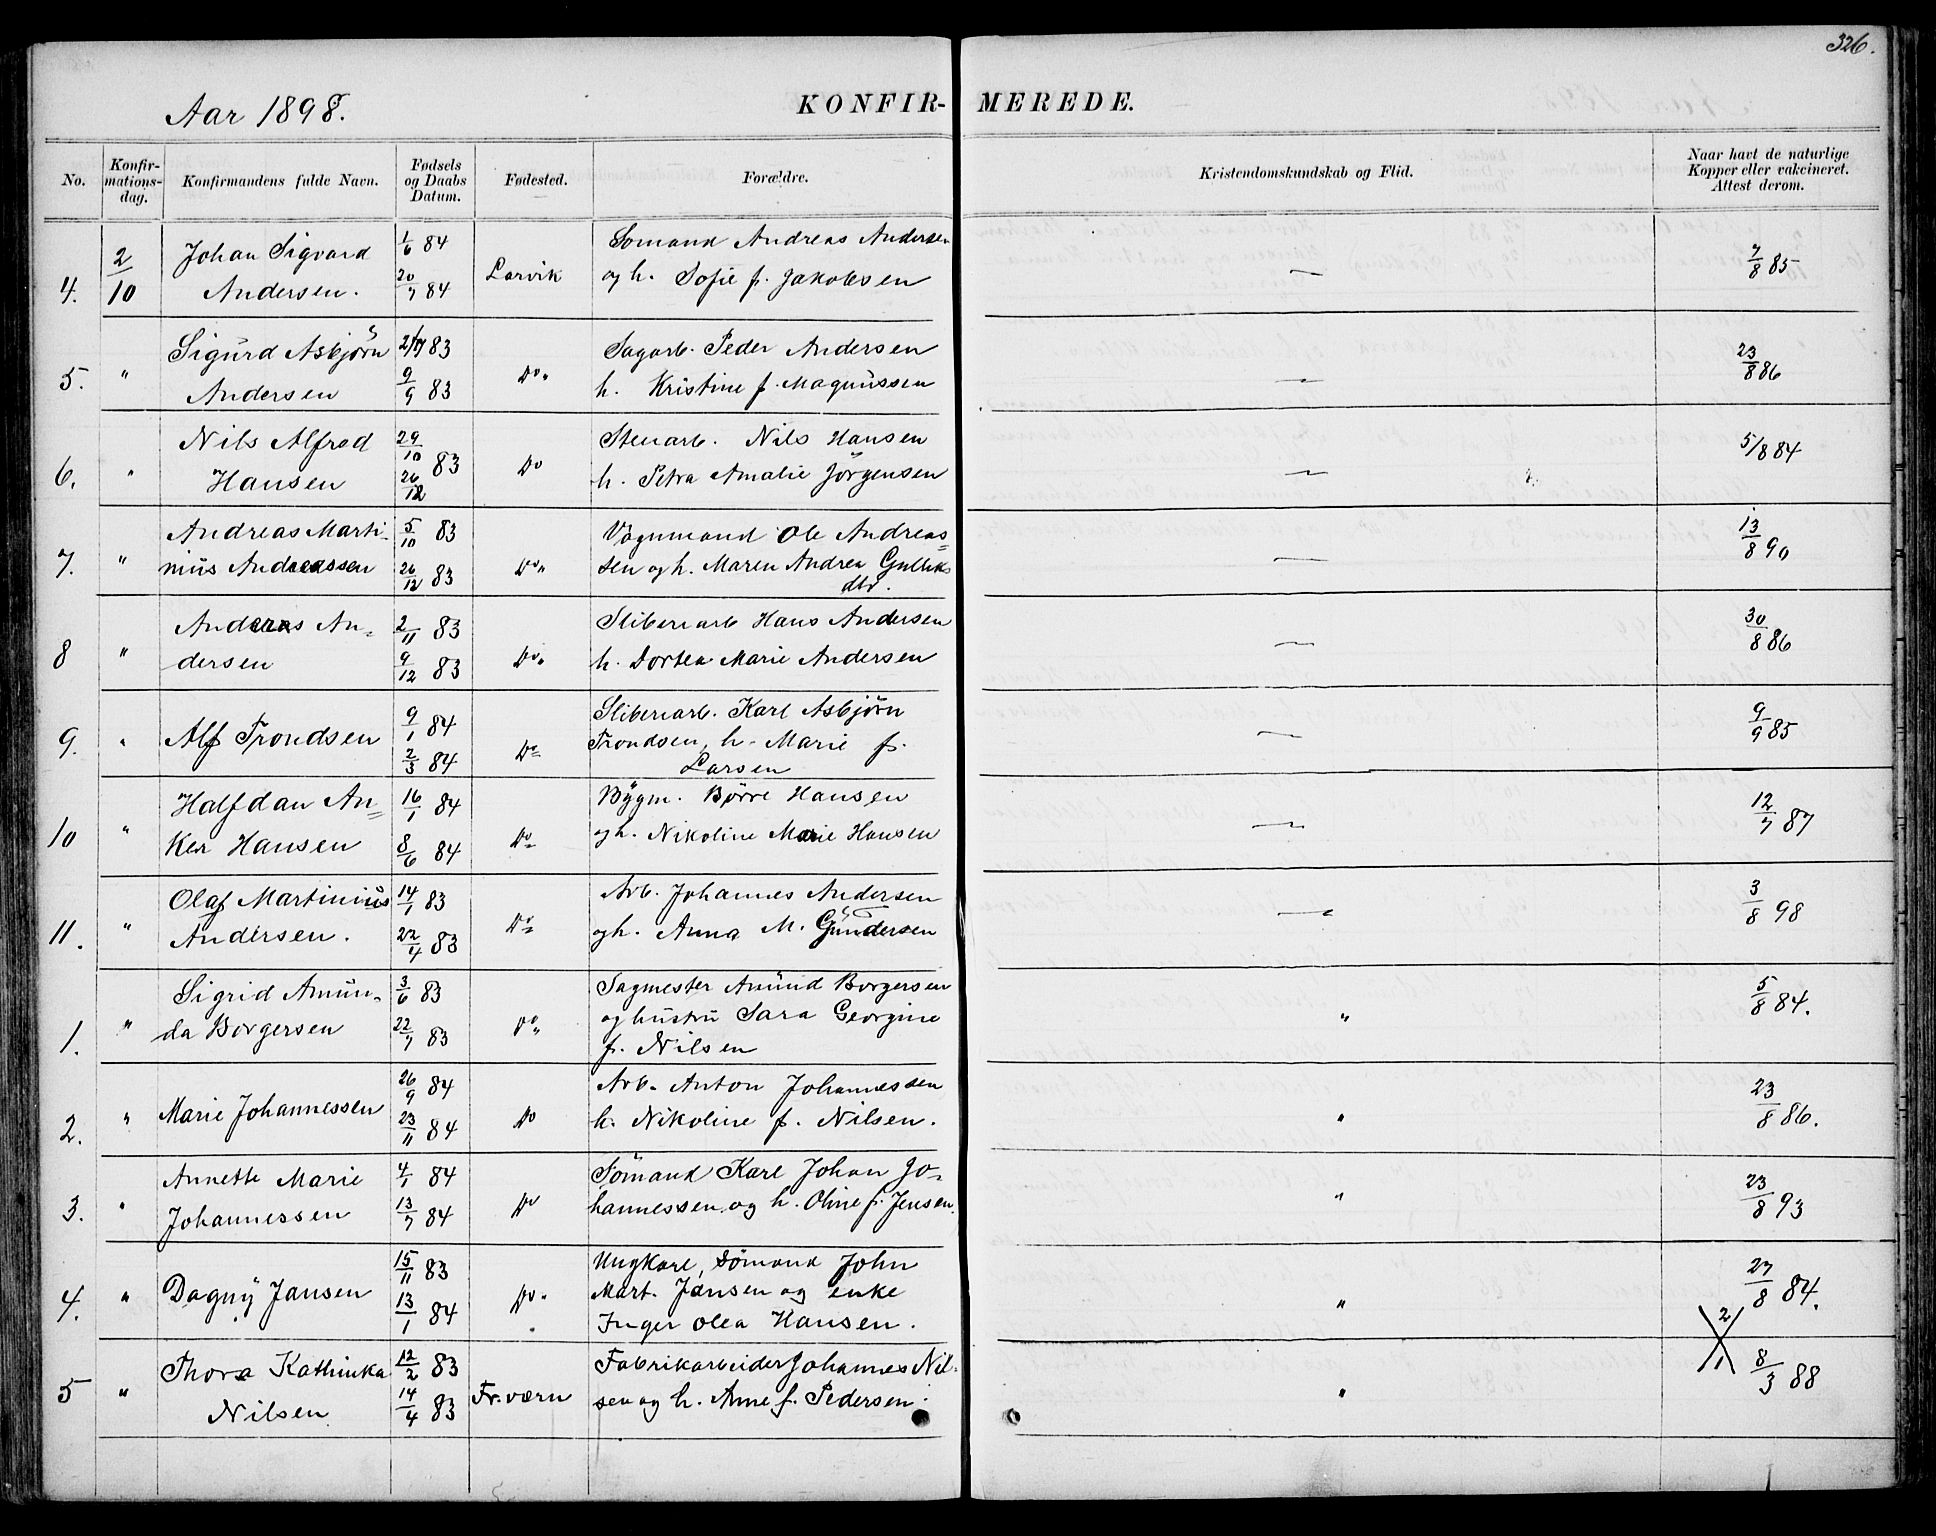 326.
Aar 1898.
KONFIR- MEREDE.
No.
Konfir-
mations-
dag.
Konfirmandens fulde Navn.
Fødsels
og Daabs
Datum.
Fødested.
Forældre.
Kristendomskundskab og Flid.
Naar havt de naturlige
Kopper eller vakcineret.
Attest derom.
4. 2/10 Johan Sigvard 1/6 84 Larvik Sømand Andreas Andersen — 7/8 85
Andersen. 20/7 84 og h. Sofie f. Jakobsen
5. " Sigurd Asbjørn 83 Do Sagarb. Peder Andersen — 23/8 86
Andersen 9/9 83 h. Kristine f. Magnussen
6. " Nils Alfred 29/10 83 Do Stenarb. Nils Hansen — 5/8 84
Hansen 26/12 h. Petra Amalie Jørgensen
7. " Andreas Marti- 5/10 83 Do Vognmand Ole Andreas= — 13/8 90
nius Andreassen 26/12 83 sen og h. Maren Andrea Gulliks
dtr.
8 " Andreas An- 2/11 83 Do Sliberiarb Hans Andersen — 30/8 86
dersen 9/12 83 h. Dortea Marie Andersen
9. " Alf Trondsen 9/1 84 Do Sliberiarb. Karl Asbjørn — 9/9 85
2/3 84 Trondsen, h. Marie f.
Larsen
10 " Halfdan An= 16/1 84 Do Bygm. Børre Hansen — 12/7 87
ker Hansen 8/6 84 og h. Nikoline Marie Hansen
11. " Olaf Martinius 14/1 83 Do Arb. Johannes Andersen — 3/8 98
Andersen. 22/4 83 og h. Anna M. Gundersen
1. " Sigrid Amun- 3/6 83 Do Sagmester Amund Borgersen " 5/8 84.
da Borgersen 22/7 83 og hustru Sara Georgine
f. Nilsen
2. " Marie Johannessen 26/9 84 Do Arb. Anton Johannessen " 23/8 86.
23/11 84 h. Nikoline f. Nilsen.
3. " Annette Marie 4/1 84 Do Sømand Karl Johan Jo- " 23/8 93
Johannessen 13/7 84 hannessen og h. Oline f. Jensen.
4. " Dagny Jansen 15/11 83 Do Ungkarl, Sømand John " 27/8 84.
13/1 84 Mart. Jansen og enke
Inger Olea Hansen.
2/1
5 " Thora Kathinka 12/2 83 Fr. værn Fabrikarbeider Johannes Nil- " 8/3 88
Nilsen 14/4 83 sen og h. Anne f. Pedersen.